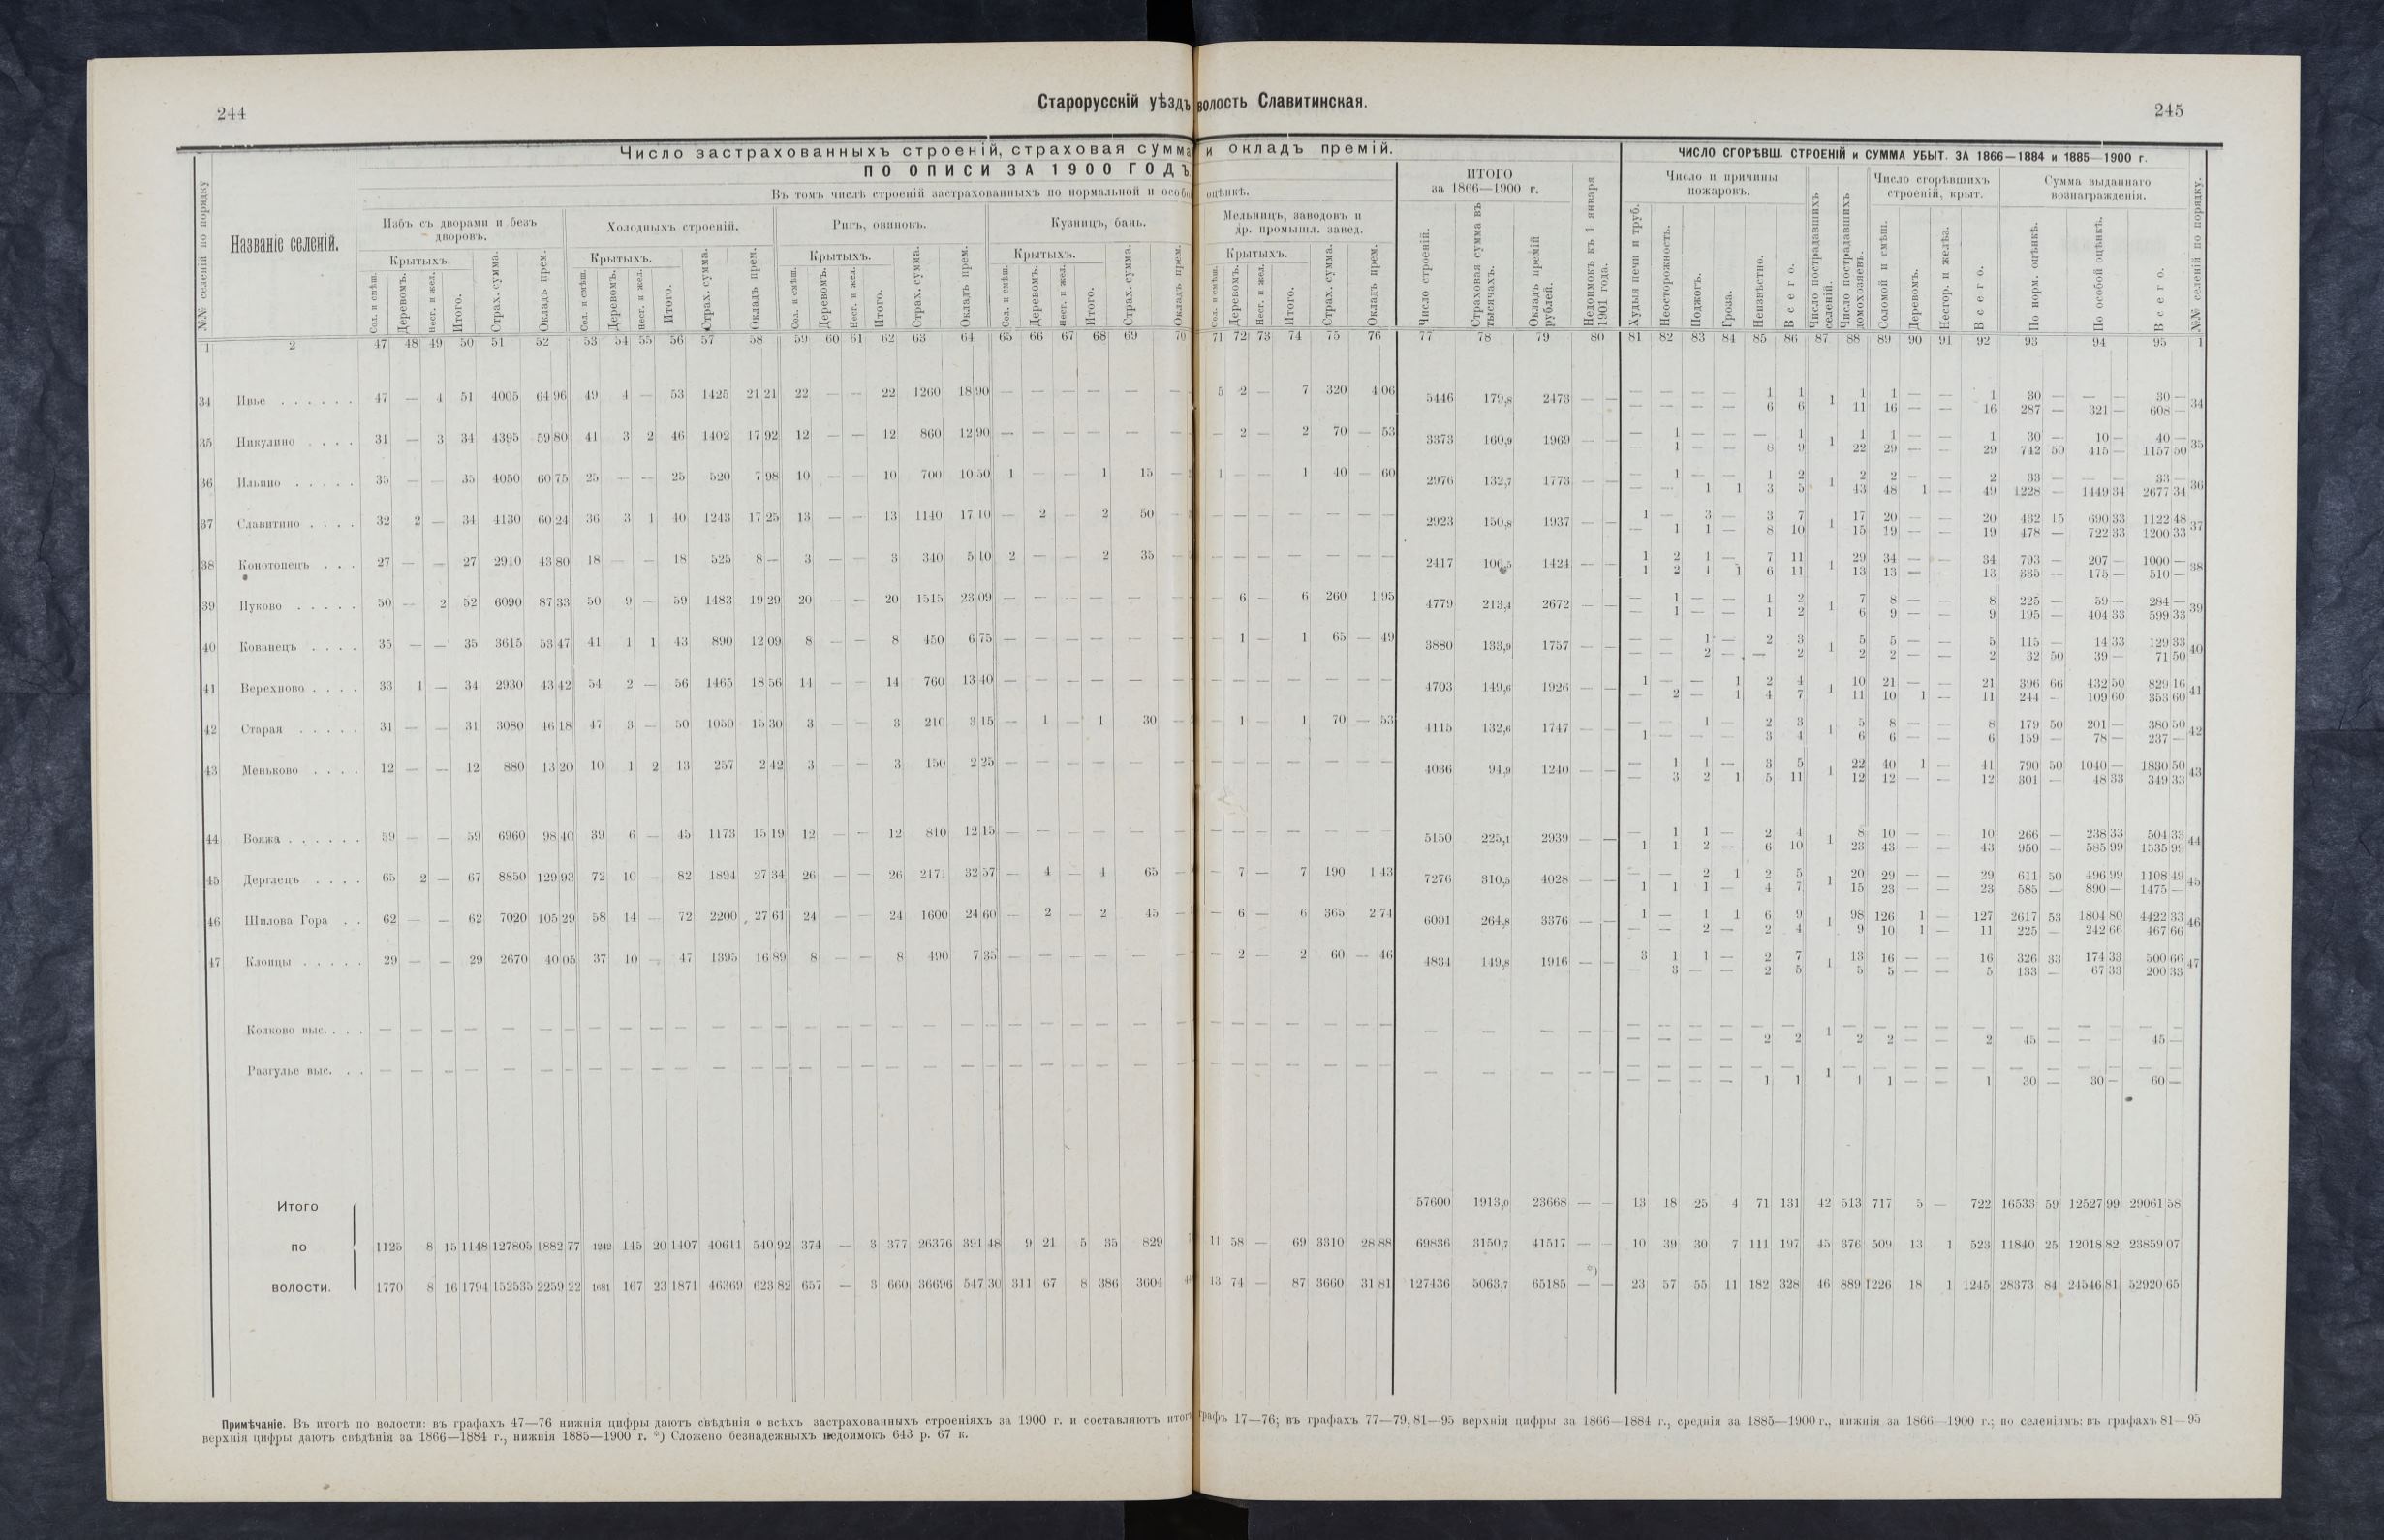 244
Старорусскій уѣздъ
волость Славитинская.
245
Число застрахованныхъ строеній, страховая сумма и окладъ премій.
ПО ОПИСИ ЗА 1900 ГОДЪ
Въ томъ числѣ строеній застрахованныхъ по нормальной и особой оцѣнкѣ.
ИТОГО за 1866—1900 г.
ЧИСЛО СГОРѢВШ. СТРОЕНІЙ и СУММА УБЫТ. ЗА 1866—1884 и 1885—1900 г.
№№ селеній по порядку
Названіе селеній.
Избъ съ дворами и безъ дворовъ.
Холодныхъ строеній.
Ригъ, овиновъ.
Кузницъ, бань.
Мельницъ, заводовъ и др. промышл. завед.
Число и причины пожаровъ.
Число сгорѣвшихъ строеній, крыт.
Сумма выданнаго вознагражденія.
Крытыхъ. Крытыхъ. Крытыхъ. Крытыхъ. Крытыхъ.
Сол. и смѣш. Деревомъ. Несг. и жел. Итого. Страх. сумма. Окладъ прем.
Сол. и смѣш. Деревомъ. Несг. и жел. Итого. Страх. сумма. Окладъ прем.
Сол. и смѣш. Деревомъ. Несг. и жел. Итого. Страх. сумма. Окладъ прем.
Сол. и смѣш. Деревомъ. Несг. и жел. Итого. Страх. сумма. Окладъ прем.
Сол. и смѣш. Деревомъ. Несг. и жел. Итого. Страх. сумма. Окладъ прем.
Число строеній. Страховая сумма въ тысячахъ. Окладъ премій рублей. Недоимокъ къ 1 января 1901 года.
Худыя печи и труб. Неосторожность. Поджогъ. Гроза. Неизвѣстно. Всего. Число пострадавшихъ селеній. Число пострадавшихъ домохозяевъ. Соломой и смѣш. Деревомъ. Несгор. и желѣз. Всего. По норм. оцѣнкѣ. По особой оцѣнкѣ. Всего. №№ селеній по порядку.
1 2 47 48 49 50 51 52 53 54 55 56 57 58 59 60 61 62 63 64 65 66 67 68 69 70 71 72 73 74 75 76 77 78 79 80 81 82 83 84 85 86 87 88 89 90 91 92 93 94 95 1
34 Ивье 47 — 4 51 4005 64 96 49 4 — 53 1425 21 21 22 — — 22 1260 18 90 — — — — — — 5 2 — 7 320 4 06 5446 179,8 2473 — — — — — — 1 1 1 1 1 — — 1 30 — — — 30 — 34
— — — — 6 6 11 16 — — 16 287 — 321 — 608 —
35 Никулино 31 — 3 34 4395 59 80 41 3 2 46 1402 17 92 12 — — 12 860 12 90 — — — — — — — 2 — 2 70 — 53 3373 160,9 1969 — — — 1 — — — 1 1 1 1 — — 1 30 — 10 — 40 — 35
— 1 — — 8 9 22 29 — — 29 742 50 415 — 1157 50
36 Ильино 35 — — 35 4050 60 75 25 — — 25 520 7 98 10 — — 10 700 10 50 1 — — 1 15 — 1 — — 1 40 — 60 2976 132,7 1773 — — — 1 — — 1 2 1 2 2 — — 2 33 — — — 33 — 36
— — 1 1 3 5 43 48 1 — 49 1228 — 1449 34 2677 34
37 Славитино 32 2 — 34 4130 60 24 36 3 1 40 1243 17 25 13 — — 13 1140 17 10 — 2 — 2 50 — — — — — — — 2923 150,8 1937 — — 1 — 3 — 3 7 1 17 20 — — 20 432 15 690 33 1122 48 37
— 1 1 — 8 10 15 19 — — 19 478 — 722 33 1200 33
38 Конотопецъ 27 — — 27 2910 43 80 18 — — 18 525 8 — 3 — — 3 340 5 10 2 — — 2 35 — — — — — — — 2417 106,5 1424 — — 1 2 1 — 7 11 1 29 34 — — 34 793 — 207 — 1000 — 38
1 2 1 1 6 11 13 13 — 13 335 — 175 — 510 —
39 Пуково 50 — 2 52 6090 87 33 50 9 — 59 1483 19 29 20 — — 20 1515 23 09 — — — — — — — 6 — 6 260 1 95 4779 213,4 2672 — — — 1 — — 1 2 1 7 8 — — 8 225 — 59 — 284 — 39
— 1 — — 1 2 6 9 — — 9 195 — 404 33 599 33
40 Кованецъ 35 — — 35 3615 53 47 41 1 1 43 890 12 09 8 — — 8 450 6 75 — — — — — — — 1 — 1 65 — 49 3880 133,9 1757 — — — — 1 — 2 3 1 5 5 — — 5 115 — 14 33 129 33 40
— — 2 — — 2 2 2 — — 2 32 50 39 — 71 50
41 Верехново 33 1 — 34 2930 43 42 54 2 — 56 1465 18 56 14 — — 14 760 13 40 — — — — — — — — — — — — 4703 149,6 1926 — — 1 — — 1 2 4 1 10 21 — — 21 396 66 432 50 829 16 41
— 2 — 1 4 7 11 10 1 — 11 244 — 109 60 353 60
42 Старая 31 — — 31 3080 46 18 47 3 — 50 1050 15 30 3 — — 3 210 3 15 — 1 — 1 30 — — 1 — 1 70 — 53 4115 132,6 1747 — — — — 1 — 2 3 1 5 8 — — 8 179 50 201 — 380 50 42
1 — — — 3 4 6 6 — — 6 159 — 78 — 237 —
43 Меньково 12 — — 12 880 13 20 10 1 2 13 257 2 42 3 — — 3 150 2 25 — — — — — — — — — — — — 4036 94,9 1240 — — — 1 1 — 3 5 1 22 40 1 — 41 790 50 1040 — 1830 50 43
— 3 2 1 5 11 12 12 — — 12 301 — 48 33 349 33
44 Вояжа 59 — — 59 6960 98 40 39 6 — 45 1173 15 19 12 — — 12 810 12 15 — — — — — — — — — — — — 5150 225,1 2939 — — — 1 1 — 2 4 1 8 10 — — 10 266 — 238 33 504 33 44
1 1 2 — 6 10 23 43 — — 43 950 — 585 99 1535 99
45 Дерглецъ 65 2 — 67 8850 129 93 72 10 — 82 1894 27 34 26 — — 26 2171 32 57 — 4 — 4 65 — — 7 — 7 190 1 43 7276 310,5 4028 — — — — 2 1 2 5 1 20 29 — — 29 611 50 496 99 1108 49 45
1 1 1 — 4 7 15 23 — — 23 585 — 890 — 1475 —
46 Шилова Гора 62 — — 62 7020 105 29 58 14 — 72 2200 27 61 24 — — 24 1600 24 60 — 2 — 2 45 — — 6 — 6 365 2 74 6001 264,8 3376 — — 1 — 1 1 6 9 1 98 126 1 — 127 2617 53 1804 80 4422 33 46
— — 2 — 2 4 9 10 1 — 11 225 — 242 66 467 66
47 Клопцы 29 — — 29 2670 40 05 37 10 — 47 1395 16 89 8 — — 8 490 7 35 — — — — — — — 2 — 2 60 — 46 4834 149,8 1916 — — 3 1 1 — 2 7 1 13 16 — — 16 326 33 174 33 500 66 47
— 3 — — 2 5 5 5 — — 5 133 — 67 33 200 33
Колково выс. — — — — — — — — — — — — — — — — — — — — — — — — — — — — — — — — — — 1 — — — — — — — — —
— — — — 2 2 2 2 — — 2 45 — — — 45 —
Разгулье выс. — — — — — — — — — — — — — — — — — — — — — — — — — — — — — — — — — — 1 — — — — — — — — —
— — — — 1 1 1 1 — — 1 30 — 30 — 60 —
Итого 57600 1913,0 23668 — — 13 18 25 4 71 131 42 513 717 5 — 722 16533 59 12527 99 29061 58
по 1125 8 15 1148 127805 1882 77 1242 145 20 1407 40611 540 92 374 — 3 377 26376 391 48 9 21 5 35 829 11 58 — 69 3310 28 88 69836 3150,7 41517 — — 10 39 30 7 111 197 45 376 509 13 1 523 11840 25 12018 82 23859 07
волости. 1770 8 16 1794 152535 2259 22 1681 167 23 1871 46369 623 82 657 — 3 660 36696 547 30 311 67 8 386 3604 13 74 — 87 3660 31 81 127436 5063,7 65185 — *) — 23 57 55 11 182 328 46 889 1226 18 1 1245 28373 84 24546 81 52920 65
Примѣчаніе. Въ итогѣ по волости: въ графахъ 47—76 нижнія цифры даютъ свѣдѣнія о всѣхъ застрахованныхъ строеніяхъ за 1900 г. и составляютъ итогъ графъ 17—76; въ графахъ 77—79, 81—95 верхнія цифры за 1866—1884 г., среднія за 1885—1900 г., нижнія за 1866—1900 г.; по селеніямъ: въ графахъ 81—95
верхнія цифры даютъ свѣдѣнія за 1866—1884 г., нижнія 1885—1900 г. *) Сложено безнадежныхъ недоимокъ 643 р. 67 к.